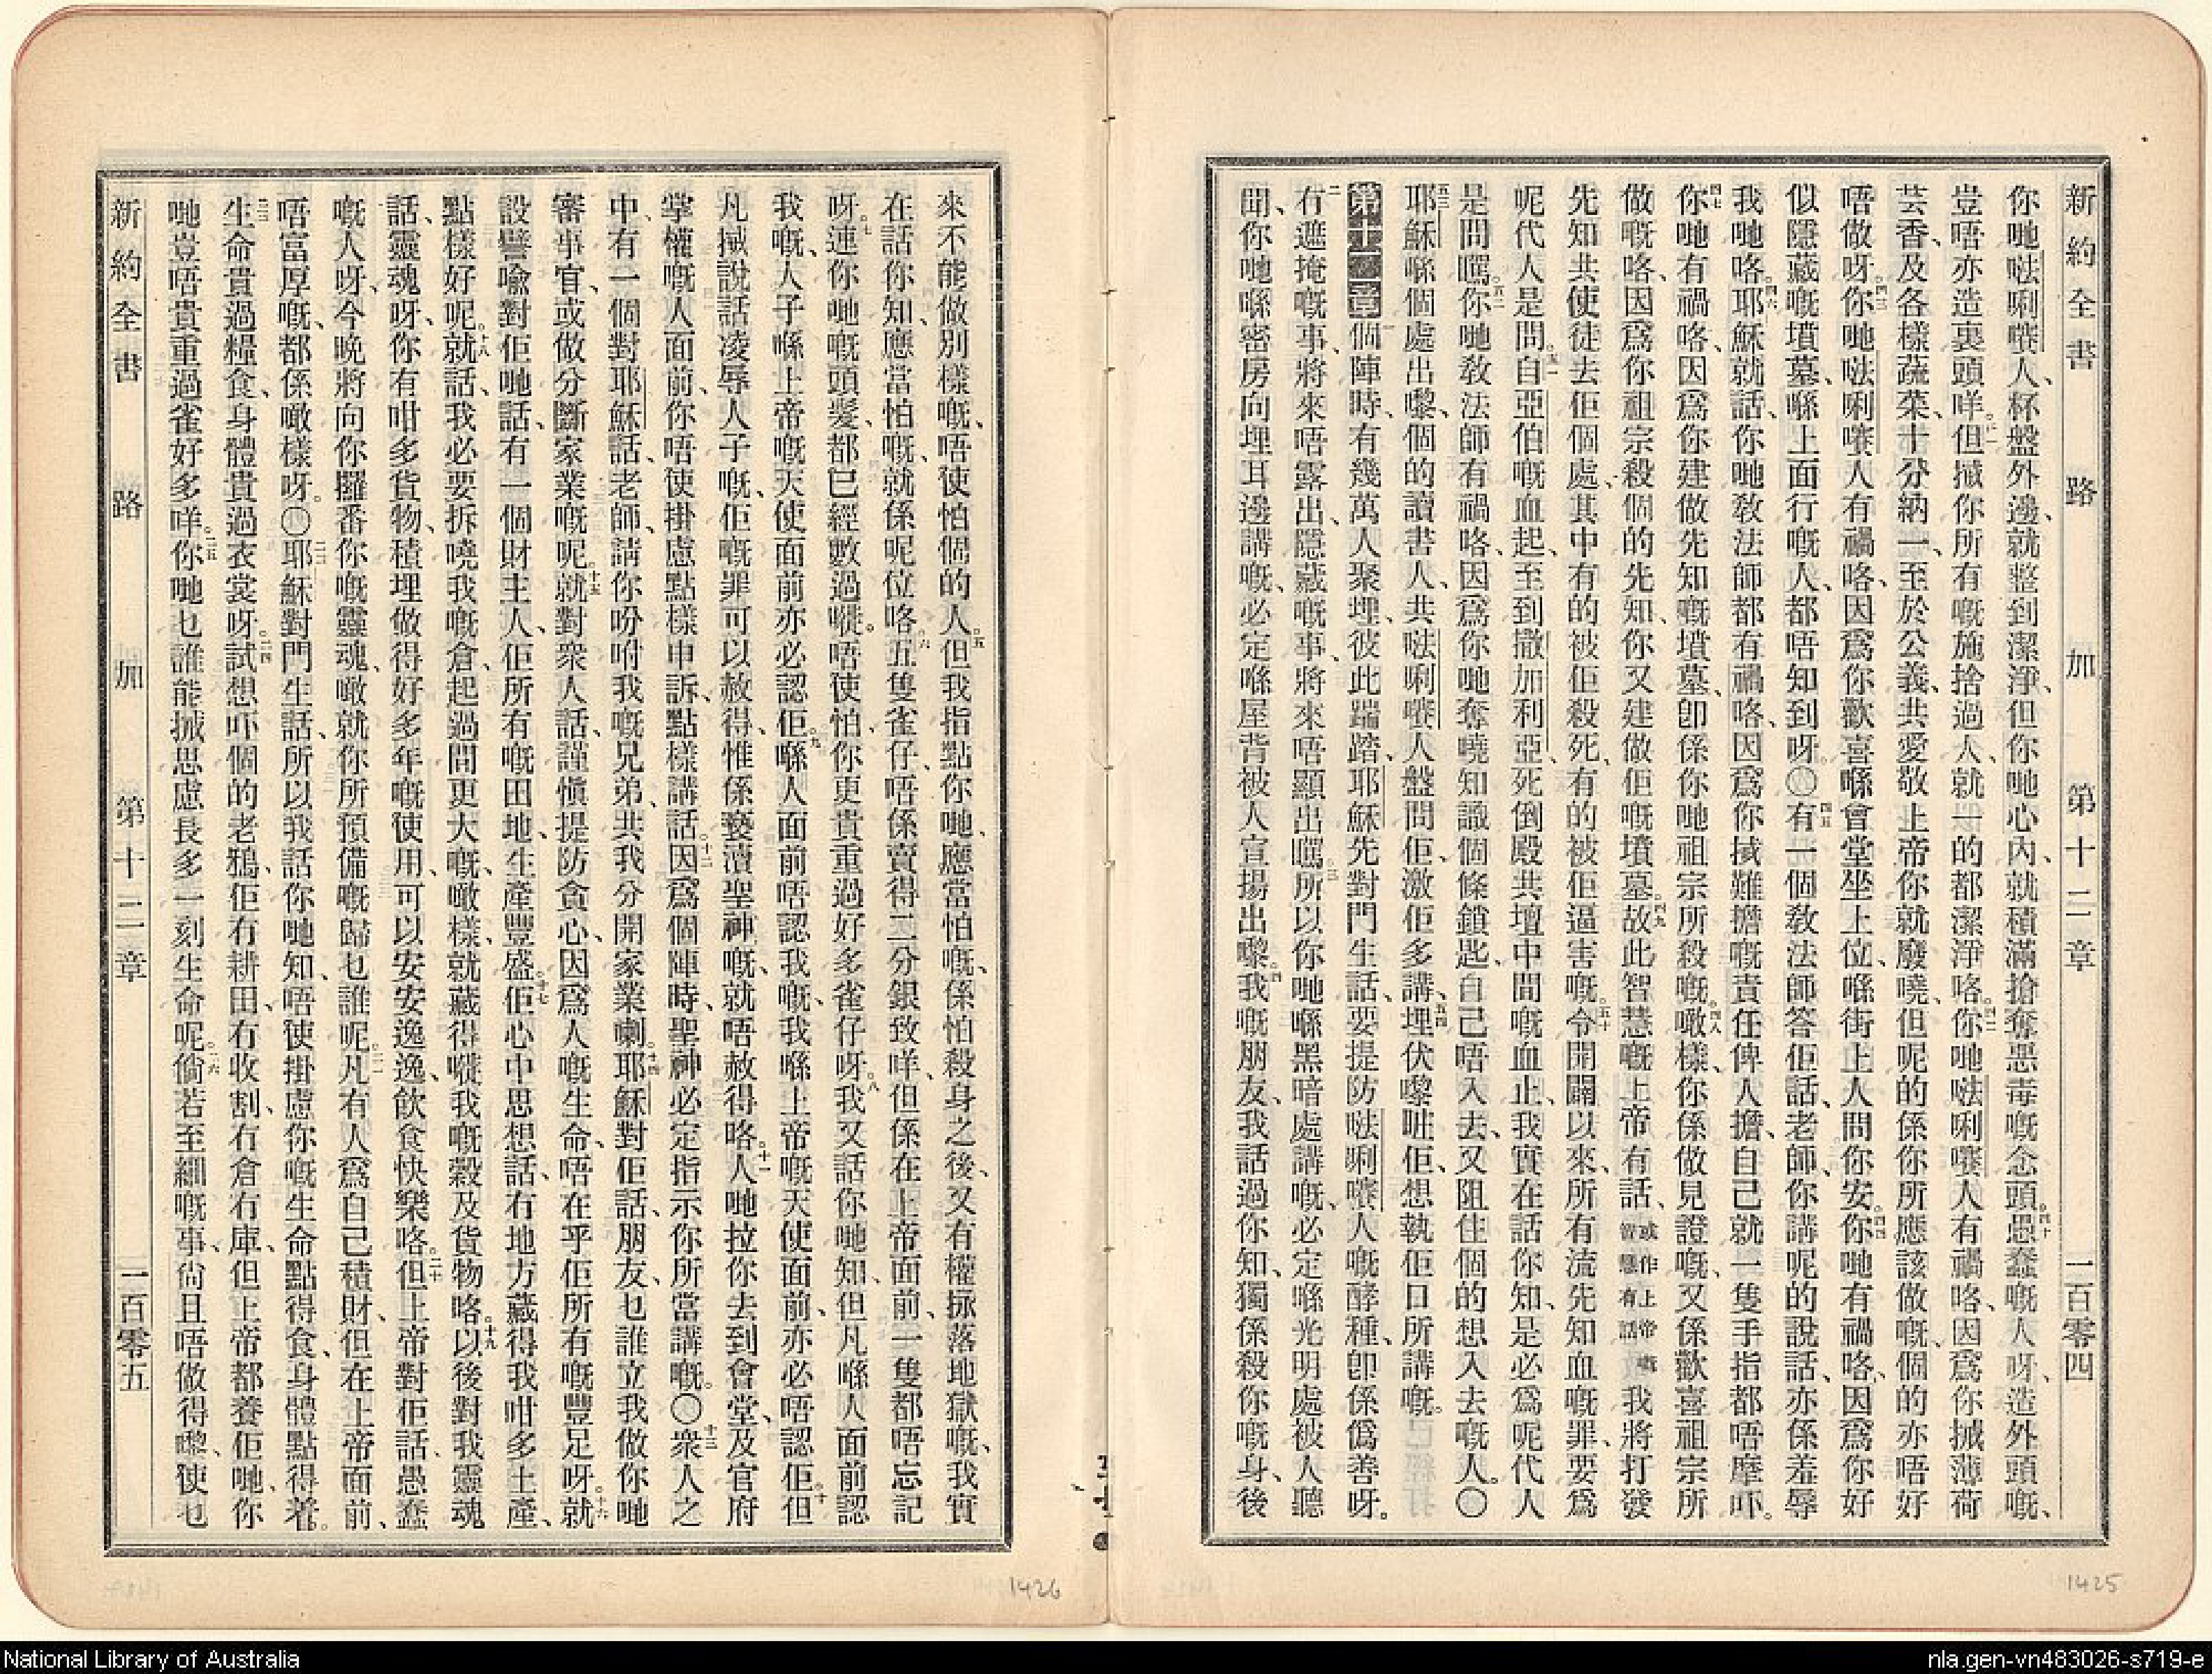 新約全書 路加 第十二章 一百零四
你哋𠵽唎㘔人、杯盤外邊、就整到潔淨、但你哋心內、就積滿搶奪惡毒嘅念頭。四十愚蠢嘅人呀、造外頭嘅、
豈唔亦造裏頭咩。四一但搣你所有嘅施捨過人、就一的都潔淨咯。四二你哋𠵽唎㘔人有禍咯、因爲你搣薄荷
芸香、及各樣蔬菜、十分納一、至於公義、共愛敬上帝、你就廢曉、但呢的係你所應該做嘅、個的亦唔好
唔做呀。四三你哋𠵽唎㘔人有禍咯、因爲你歡喜喺會堂坐上位、喺街上人問你安。四四你哋有禍咯、因爲你好
似隱藏嘅墳墓、喺上面行嘅人、都唔知到呀。〇四五有一個敎法師答佢話、老師、你講呢的說話、亦係羞辱
我哋咯。四六耶穌就話、你哋敎法師都有禍咯、因爲你搣難擔嘅責任俾人擔、自己就一隻手指都唔摩吓。
四七你哋有禍咯、因爲你建做先知嘅墳墓、卽係你哋祖宗所殺嘅。四八噉樣、你係做見證嘅、又係歡喜祖宗所
做嘅咯、因爲你祖宗殺個的先知、你又建做佢嘅墳墓。四九故此智慧嘅上帝有話、或作上帝嘅智慧有話我將打發
先知共使徒去佢個處、其中有的被佢殺死、有的被佢逼害嘅。五十令開闢以來、所有流先知血嘅罪、要爲
呢代人是問。五一自亞伯嘅血起、至到撒加利亞、死倒殿共壇中間嘅血止、我實在話你知、是必爲呢代人
是問嚸。五二你哋敎法師有禍咯、因爲你哋奪曉知識個條鎖匙、自己唔入去、又阻住個的想入去嘅人。〇
五三耶穌喺個處出嚟、個的讀書人、共𠵽唎㘔人盤問佢、激佢多講、五四埋伏嚟呲佢、想執佢口所講嘅。
第十二章 一個陣時、有幾萬人聚埋、彼此踹踏、耶穌先對門生話、要提防𠵽唎㘔人嘅酵種、卽係僞善呀。
二冇遮掩嘅事、將來唔露出、隱藏嘅事、將來唔顯出嚸。三所以你哋喺黑暗處講嘅、必定喺光明處被人聽
聞、你哋喺密房向埋耳邊講嘅、必定喺屋背被人宣揚出嚟。四我嘅朋友、我話過你知、獨係殺你嘅身、後
1425
來不能做別樣嘅、唔使怕個的人。五但我指點你哋、應當怕嘅、係怕殺身之後、又有權揼落地獄嘅、我實
在話你知、應當怕嘅、就係呢位咯。六五隻雀仔、唔係賣得二分銀致咩、但係在上帝面前、一隻都唔忘記
呀。七連你哋嘅頭髮、都已經數過嚡。唔使怕、你更貴重過好多雀仔呀。八我又話你哋知、但凡喺人面前認
我嘅、人子喺上帝嘅天使面前亦必認佢。九喺人面前唔認我嘅、我喺上帝嘅天使面前、亦必唔認佢。十但
凡搣說話凌辱人子嘅、佢嘅罪可以赦得、惟係褻瀆聖神嘅、就唔赦得咯。十一人哋拉你去到會堂、及官府
掌權嘅人面前、你唔使掛慮點樣申訴、點樣講話。十二因爲個陣時、聖神必定指示你所當講嘅。〇十三衆人之
中、有一個對耶穌話、老師、請你吩咐我嘅兄弟、共我分開家業喇。十四耶穌對佢話、朋友、乜誰立我做你哋
審事官、或做分斷家業嘅呢。十五就對衆人話、謹愼提防貪心、因爲人嘅生命、唔在乎佢所有嘅豐足呀。十六就
設譬喩對佢哋話、有一個財主人、佢所有嘅田地、生產豐盛。十七佢心中思想話、冇地方藏得我咁多土產、
點樣好呢。十八就話、我必要拆曉我嘅倉、起過間更大嘅、噉樣、就藏得嚡我嘅穀及貨物咯。十九以後對我靈魂
話、靈魂呀、你有咁多貨物、積埋做得好多年嘅使用、可以安安逸逸、飮食快樂咯。二十但上帝對佢話、愚蠢
嘅人呀、今晚將向你攞番你嘅靈魂、噉就你所預備嘅歸乜誰呢。二一凡有人爲自己積財、但在上帝面前、
唔富厚嘅、都係噉樣呀。〇二二耶穌對門生話、所以我話你哋知、唔使掛慮你嘅生命點得食、身體點得着。
二三生命貴過糧食、身體貴過衣裳呀。二四試想吓個的老鴉、佢冇耕田、冇收割、冇倉冇庫、但上帝都養佢哋、你
哋豈唔貴重過雀好多咩。二五你哋乜誰能搣思慮長多一刻生命呢。二六倘若至細嘅事、尙且唔做得嚟、使乜
新約全書 路加 第十二章 一百零五
1426
National Library of Australia
nla.gen-vn483026-s719-e